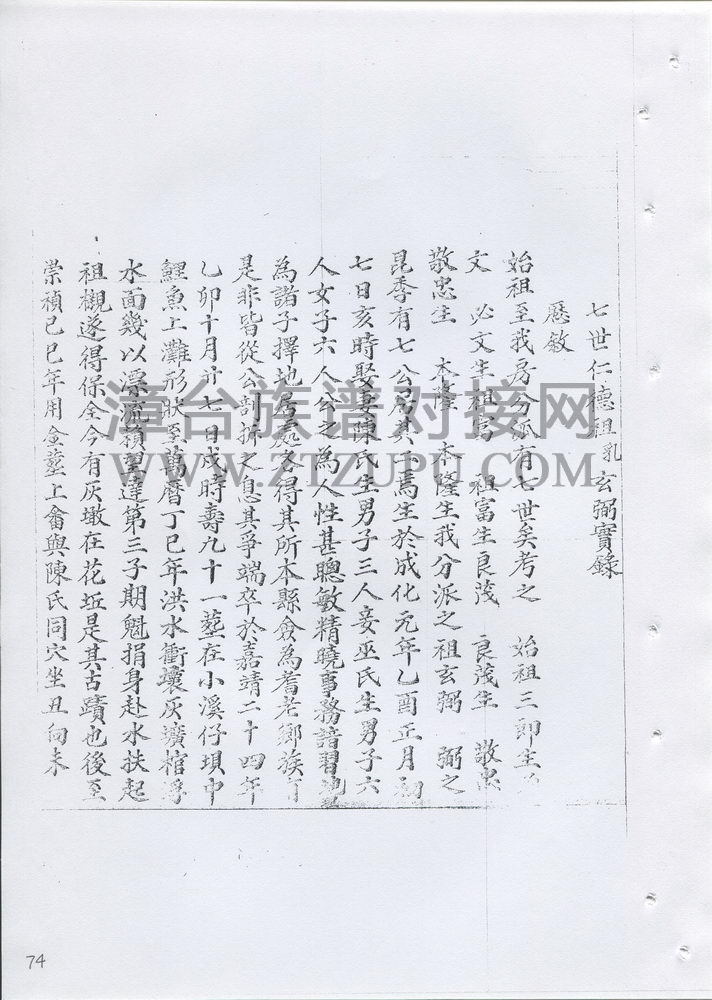 七世仁德祖乳玄弼實錄
歷敘
始祖至我房分派有七世矣考之 始祖三郎生
文 必文生祖富 祖富生良茂 良茂生 敬忠
敬忠生 木隆 木隆生我分派之祖玄弼 弼之
昆季有七公居其 焉生於成化元年乙酉正月初
七日亥時娶妻陳氏生男子三人妾巫氏生男子六
人女子六人公之為人性甚聰敏精曉事務諳習地
為諸子擇地居處各得其所本縣僉為耆老鄉族有
是非皆從公剖析之息其爭端卒於嘉靖二十四年
乙卯十月廿七日戌時壽九十一葬在小溪仔垻中
鯉魚上灘形狀至萬曆丁巳年洪水衝壞灰壙棺浮
水面幾以漂流賴望達第三子期魁捐身赴水扶起
祖櫬遂得保全今有灰墩在花坵是其古蹟也後至
崇禎己巳年用金葬上畬與陳氏同穴坐丑向未
74
漳台族谱对接网
WWW.ZTZUPU.COM